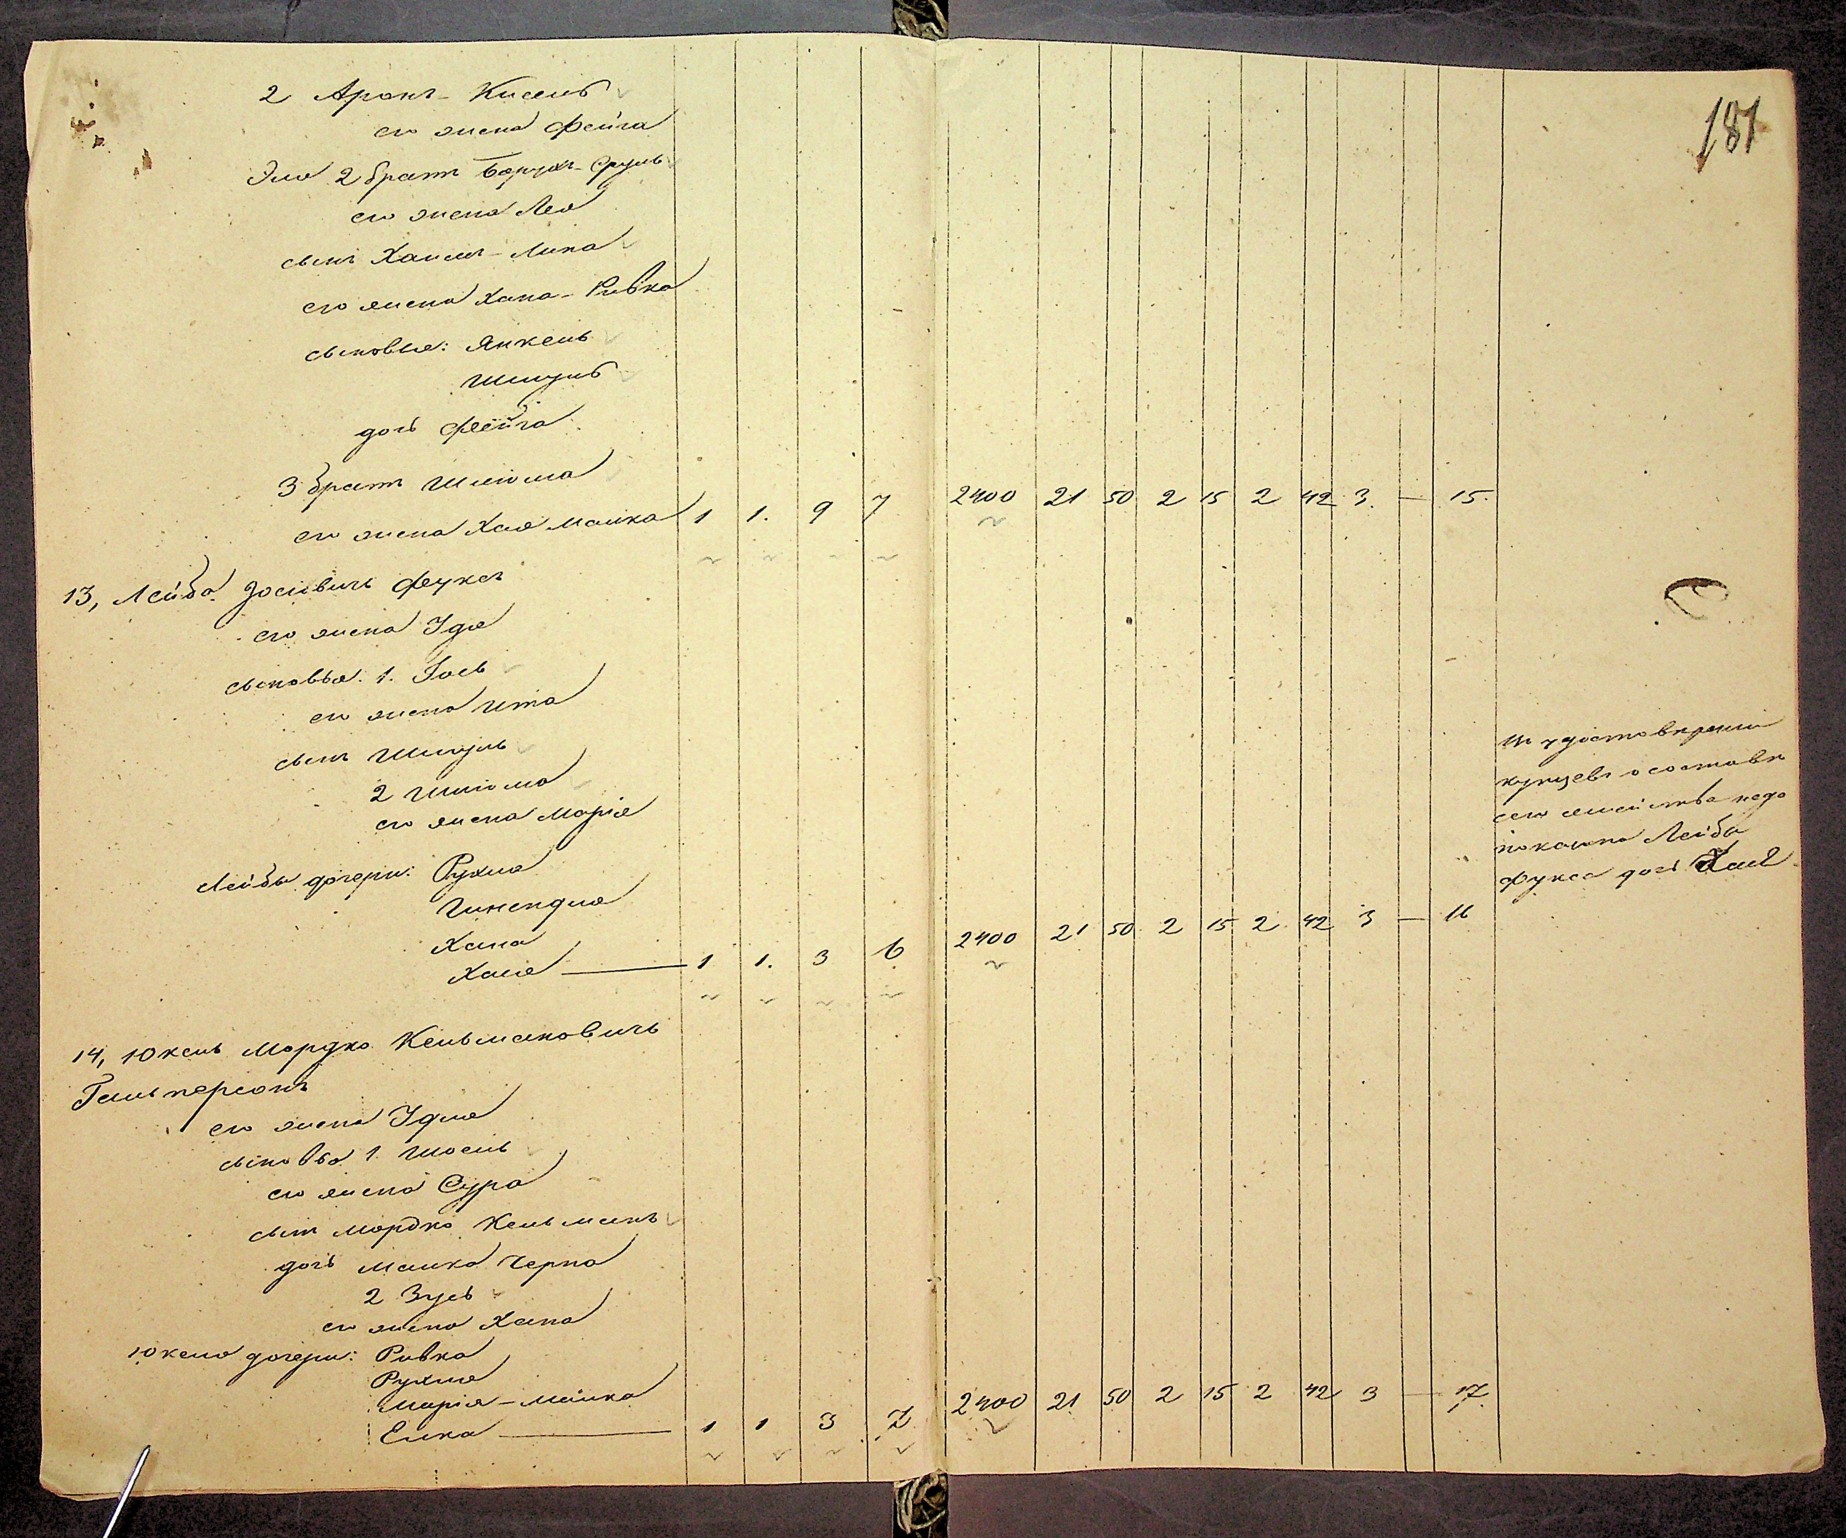 181
2 Аронъ-Кисель
его жена Фейга
Эля 2 братъ Борухъ-Сруль
его жена Лея
сынъ Хаимъ-Липа
его жена Хана-Ривка
сыновья: Янкель
Шмуль
дочь Фейга
3 братъ Шлiома
его жена Хая Малка 1 1. 9 7 2400 21 50 2 15 2 42 3. — 15.
13, Лейба Iосiовичъ Фуксъ
его жена Идя
сыновья. 1. Iось
его жена Ита
сынъ Шмуль
2 Шлiома
его жена Марiя
Лейбы дочери: Рухля
Гинендля
Хана
Хая — 1 1. 3 6 2400 21 50 2 15 2 42 3 — 16
Въ удостовѣренiи
купцевъ о составѣ
сего семейства недо
показана Лейбы
Фукса дочь Хая
14, Юкель Мордко Кельмановичъ
Гальперсонъ
его жена Идля
сыновья 1. Шоель
его жена Сура
сынъ Мордко Кельманъ
дочь Малка Черна
2 Зусь
его жена Хана
Юкеля дочери: Ривка
Рухля
Марiя-Малка
Елка — 1 1 3 7 2400 21 50 2 15 2 42 3 — 17.